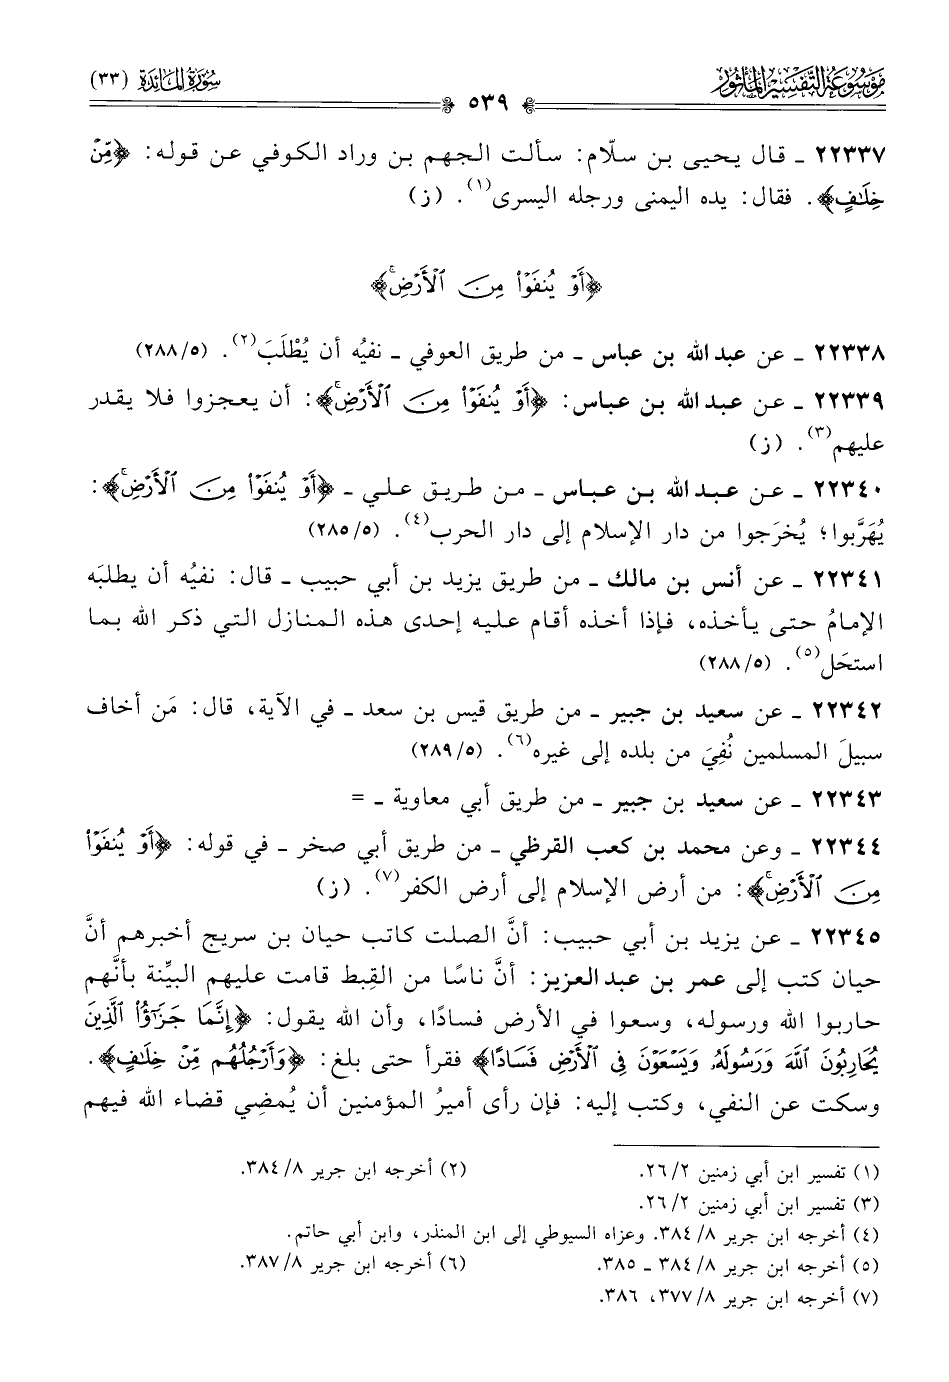 موسوعة التفسير المأثور
سورة المائدة (٣٣)
٥٣٩
٢٢٣٣٧ ـ قال يحيى بن سلّام: سألت الجهم بن وراد الكوفي عن قوله: ﴿مِّنْ
خِلَٰفٍ﴾. فقال: يده اليمنى ورجله اليسرى(١). (ز)
﴿أَوْ يُنفَوْا۟ مِنَ ٱلْأَرْضِ ۚ﴾
٢٢٣٣٨ ـ عن عبد الله بن عباس ـ من طريق العوفي ـ نفيُه أن يُطْلَبَ(٢). (٥/ ٢٨٨)
٢٢٣٣٩ ـ عن عبد الله بن عباس: ﴿أَوْ يُنفَوْا۟ مِنَ ٱلْأَرْضِ ۚ﴾: أن يعجزوا فلا يقدر
عليهم(٣). (ز)
٢٢٣٤٠ ـ عن عبد الله بن عباس ـ من طريق علي ـ ﴿أَوْ يُنفَوْا۟ مِنَ ٱلْأَرْضِ ۚ﴾:
يُهَرَّبوا؛ يُخرَجوا من دار الإسلام إلى دار الحرب(٤). (٥/ ٢٨٥)
٢٢٣٤١ ـ عن أنس بن مالك ـ من طريق يزيد بن أبي حبيب ـ قال: نفيُه أن يطلبَه
الإمامُ حتى يأخذه، فإذا أخذه أقام عليه إحدى هذه المنازل التي ذكر الله بما
استحَل(٥). (٥/ ٢٨٨)
٢٢٣٤٢ ـ عن سعيد بن جبير ـ من طريق قيس بن سعد ـ في الآية، قال: مَن أخاف
سبيلَ المسلمين نُفِيَ من بلده إلى غيره(٦). (٥/ ٢٨٩)
٢٢٣٤٣ ـ عن سعيد بن جبير ـ من طريق أبي معاوية ـ =
٢٢٣٤٤ ـ وعن محمد بن كعب القرظي ـ من طريق أبي صخر ـ في قوله: ﴿أَوْ يُنفَوْا۟
مِنَ ٱلْأَرْضِ ۚ﴾: من أرض الإسلام إلى أرض الكفر(٧). (ز)
٢٢٣٤٥ ـ عن يزيد بن أبي حبيب: أنَّ الصلت كاتب حيان بن سريج أخبرهم أنَّ
حيان كتب إلى عمر بن عبد العزيز: أنَّ ناسًا من القِبط قامت عليهم البيِّنة بأنَّهم
حاربوا الله ورسوله، وسعوا في الأرض فسادًا، وأن الله يقول: ﴿إِنَّمَا جَزَٰٓؤُا۟ ٱلَّذِينَ
يُحَارِبُونَ ٱللَّهَ وَرَسُولَهُۥ وَيَسْعَوْنَ فِى ٱلْأَرْضِ فَسَادًا﴾ فقرأ حتى بلغ: ﴿وَأَرْجُلُهُم مِّنْ خِلَٰفٍ﴾.
وسكت عن النفي، وكتب إليه: فإن رأى أميرُ المؤمنين أن يُمضِي قضاء الله فيهم
(١) تفسير ابن أبي زمنين ٢/ ٢٦. (٢) أخرجه ابن جرير ٨/ ٣٨٤.
(٣) تفسير ابن أبي زمنين ٢/ ٢٦.
(٤) أخرجه ابن جرير ٨/ ٣٨٤. وعزاه السيوطي إلى ابن المنذر، وابن أبي حاتم.
(٥) أخرجه ابن جرير ٨/ ٣٨٤ ـ ٣٨٥. (٦) أخرجه ابن جرير ٨/ ٣٨٧.
(٧) أخرجه ابن جرير ٨/ ٣٧٧، ٣٨٦.